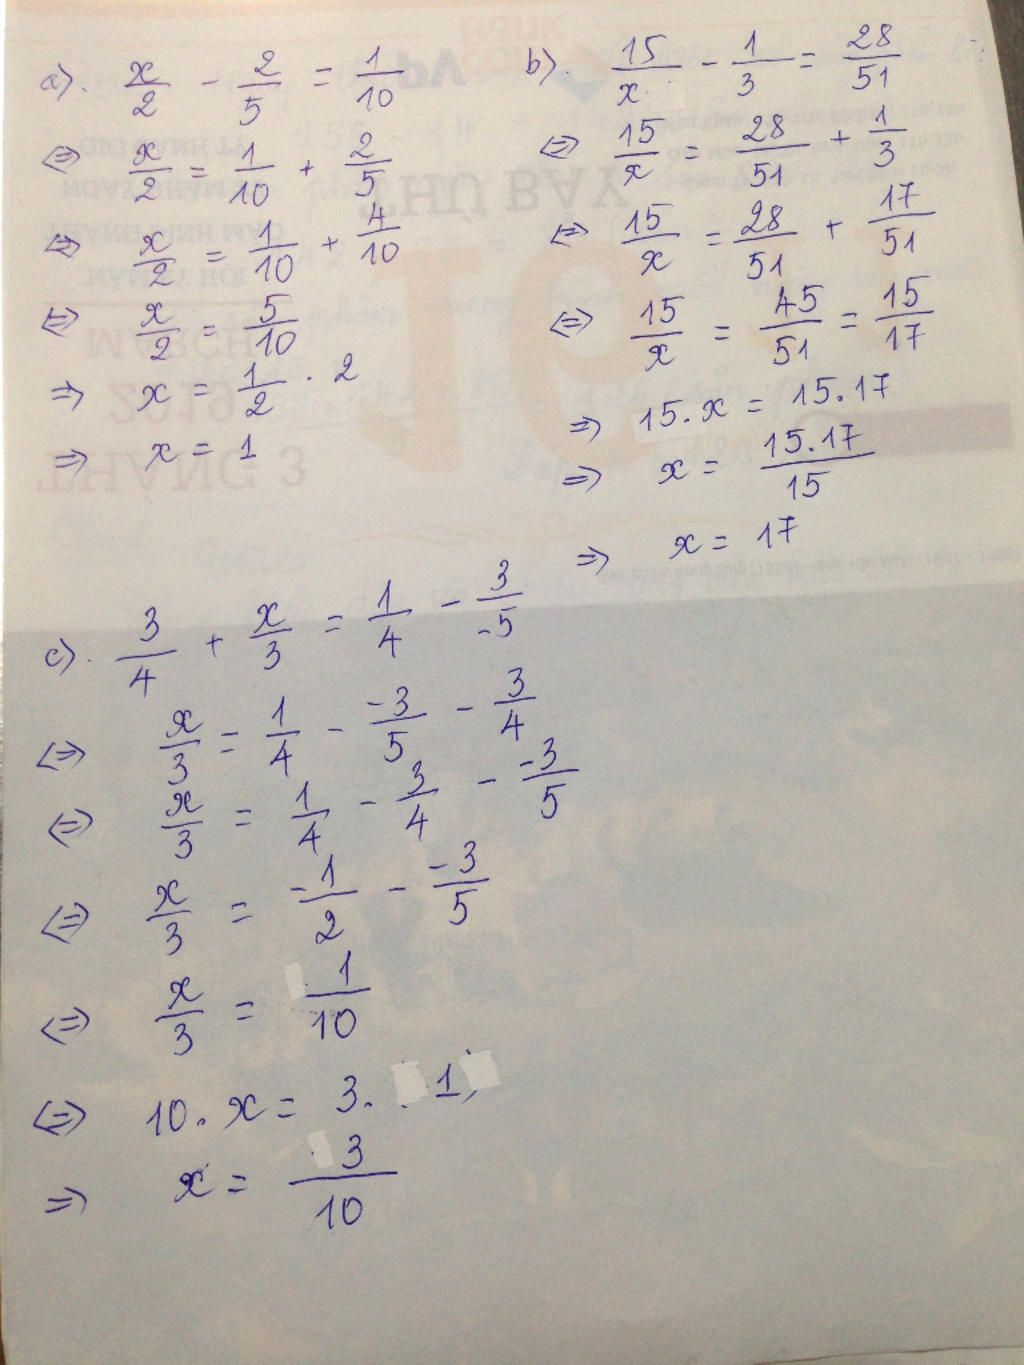 a). x/2 - 2/5 = 1/10
⇔ x/2 = 1/10 + 2/5
⇔ x/2 = 1/10 + 4/10
⇔ x/2 = 5/10
⇒ x = 1/2 . 2
⇒ x = 1
b). 15/x - 1/3 = 28/51
⇔ 15/x = 28/51 + 1/3
⇔ 15/x = 28/51 + 17/51
⇔ 15/x = 45/51 = 15/17
⇒ 15.x = 15.17
⇒ x = 15.17/15
⇒ x = 17
c). 3/4 + x/3 = 1/4 - 3/-5
⇔ x/3 = 1/4 - -3/5 - 3/4
⇔ x/3 = 1/4 - 3/4 - -3/5
⇔ x/3 = -1/2 - -3/5
⇔ x/3 = 1/10
⇔ 10.x = 3. 1
⇒ x = 3/10
THỨ BẢY
19
MARCH
2019
THÁNG 3